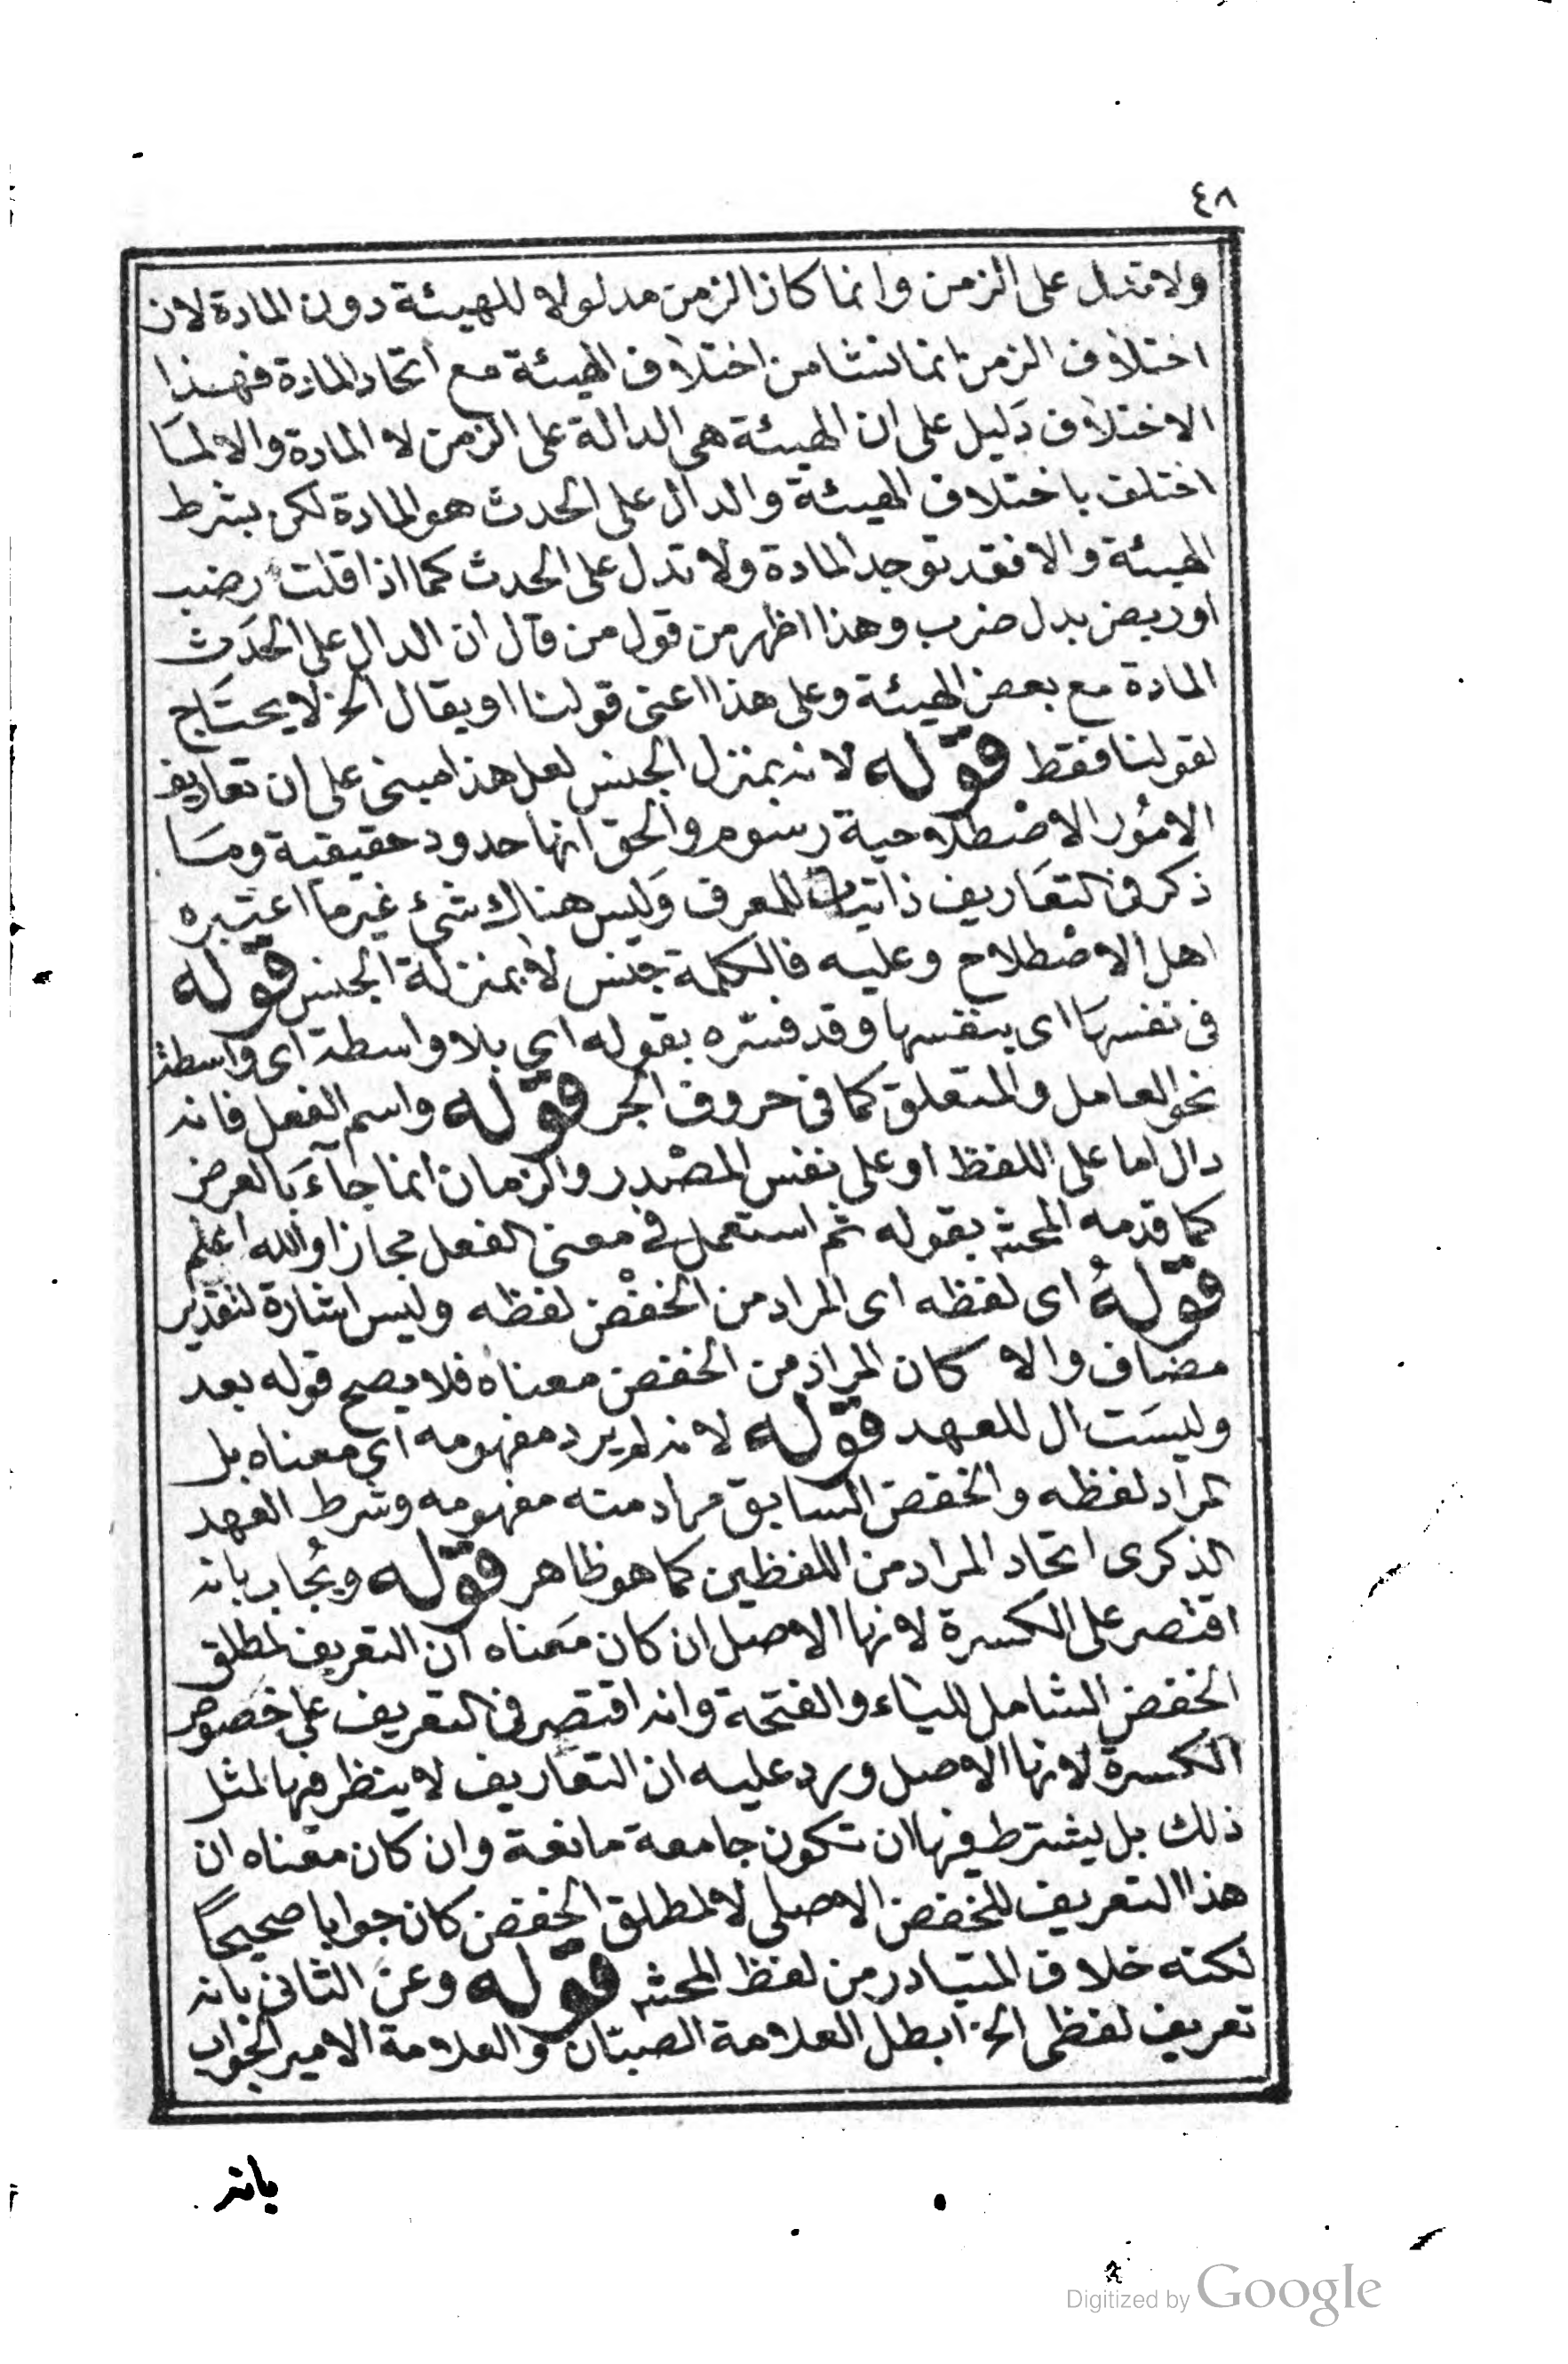 ٤٨
ولا تدل على الزمن وانما كان الزمن مدلولا للهيئة دون المادة لان
اختلاف الزمن انما نشا من اختلاف الهيئة مع اتحاد المادة فهذا
الاختلاف دَليل على ان الهيئة هى الدالة على الزمن لا المادة والا لما
اختلف باختلاف الهيئة والدال على الحدث هو المادة لكن بشرط
الهيئة والا فقد توجد المادة ولا تدل على الحدث كما اذا قلت رضب
او ربض بدل ضرب وهذا اظهر من قول من قال ان الدال على الحَدَث
المادة مع بعض الهيئة وعلى هذا اعنى قولنا او يقال الخ لا يحتَاج
لقولنا فقط قوله لانه بمنزل الجنس لعل هذا مبنى على ان تعاريف
الامُور الاصْطلاحية رسوم والحق انها حدود حقيقية ومَا
ذكر فى التعَاريف ذاتيات للمعرف وَليس هناك شئ غير ما اعتبره
اهل الاصْطلاح وعليه فالكلمة جنس لا بمنزلة الجنس قوله
فى نفسهَا اى بنفسها وقد فسّره بقوله اي بلا واسطة اى واسطة
نحو العامل والمتعلق كما فى حروف الجر قوله واسم الفعل فانه
دال اما على اللفظ او على نفس المصْدر والزمان انما جاءَ بَالعرض
كما قدمه المحشى بقوله ثم استعمل فى معنى الفعل مجازا والله اعلم
قولهُ اى لفظه اى المراد من الخفْض لفظه وليس اشارة لتقدير
مضاف والا كان المراد من الخفض معناه فلا يصح قوله بعد
وليسَت ال للعهد قوله لانه لم يرد مفهومه اي معناه بل
المراد لفظه والخفض السابق مراد منه مفهومه وشرط العهد
الذكرى اتحاد المراد من اللفظين كما هو ظاهر قوله ويُجاب بانه
اقتصر على الكسرة لانها الاصل ان كان مَعناه ان التعريف لمطلق
الخفض الشامل للياء والفتحة وانه اقتصر فى التعريف على خصوص
الكسرة لانها الاصل ويرد عليه ان التعاريف لا ينظر فيها لمثل
ذلك بل يشترط فيها ان تكون جامعة مانعة وان كان معناه ان
هذا التعريف للخفض الاصلى لا لمطلق الخفض كان جوابا صحيحًا
لكنه خلاف المتبادر من لفظ المحشى قوله وعن الثانى بانه
تعريف لفظى الخ ابطل العلامة الصبّان والعلامة الامير الجواب
بانه
Digitized by Google